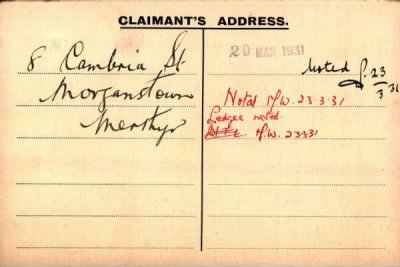 CLAIMANT'S ADDRESS.
8 Cambria St
Morganstown
Merthyr
20 MAR 1931
Noted 23/3/31
Noted M.W. 23.3.31
Ledger noted
M.W. 23.3.31